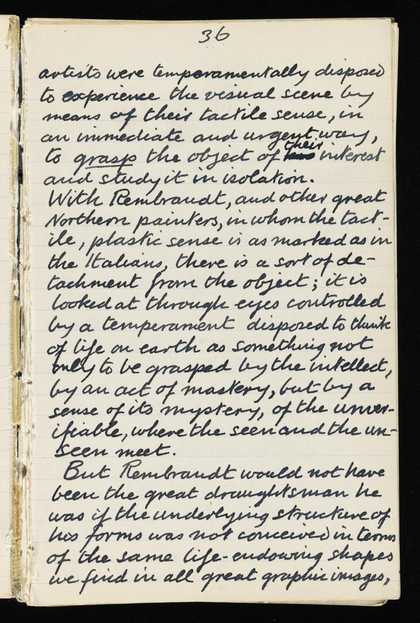 36
artists were temperamentally disposed
to experience the visual scene by
means of their tactile sense, in
an immediate and urgent way,
to grasp the object of their interest
and study it in isolation.
With Rembrandt, and other great
Northern painters, in whom the tact-
ile, plastic sense is as marked as in
the Italians, there is a sort of de-
tachment from the object; it is
looked at through eyes controlled
by a temperament disposed to think
of life on earth as something not
only to be grasped by the intellect,
by an act of mastery, but by a
sense of its mystery, of the unver-
ifiable, where the seen and the un-
seen meet.
But Rembrandt would not have
been the great draughtsman he
was if the underlying structure of
his forms was not conceived in terms
of the same life-endowing shapes
we find in all great graphic images,